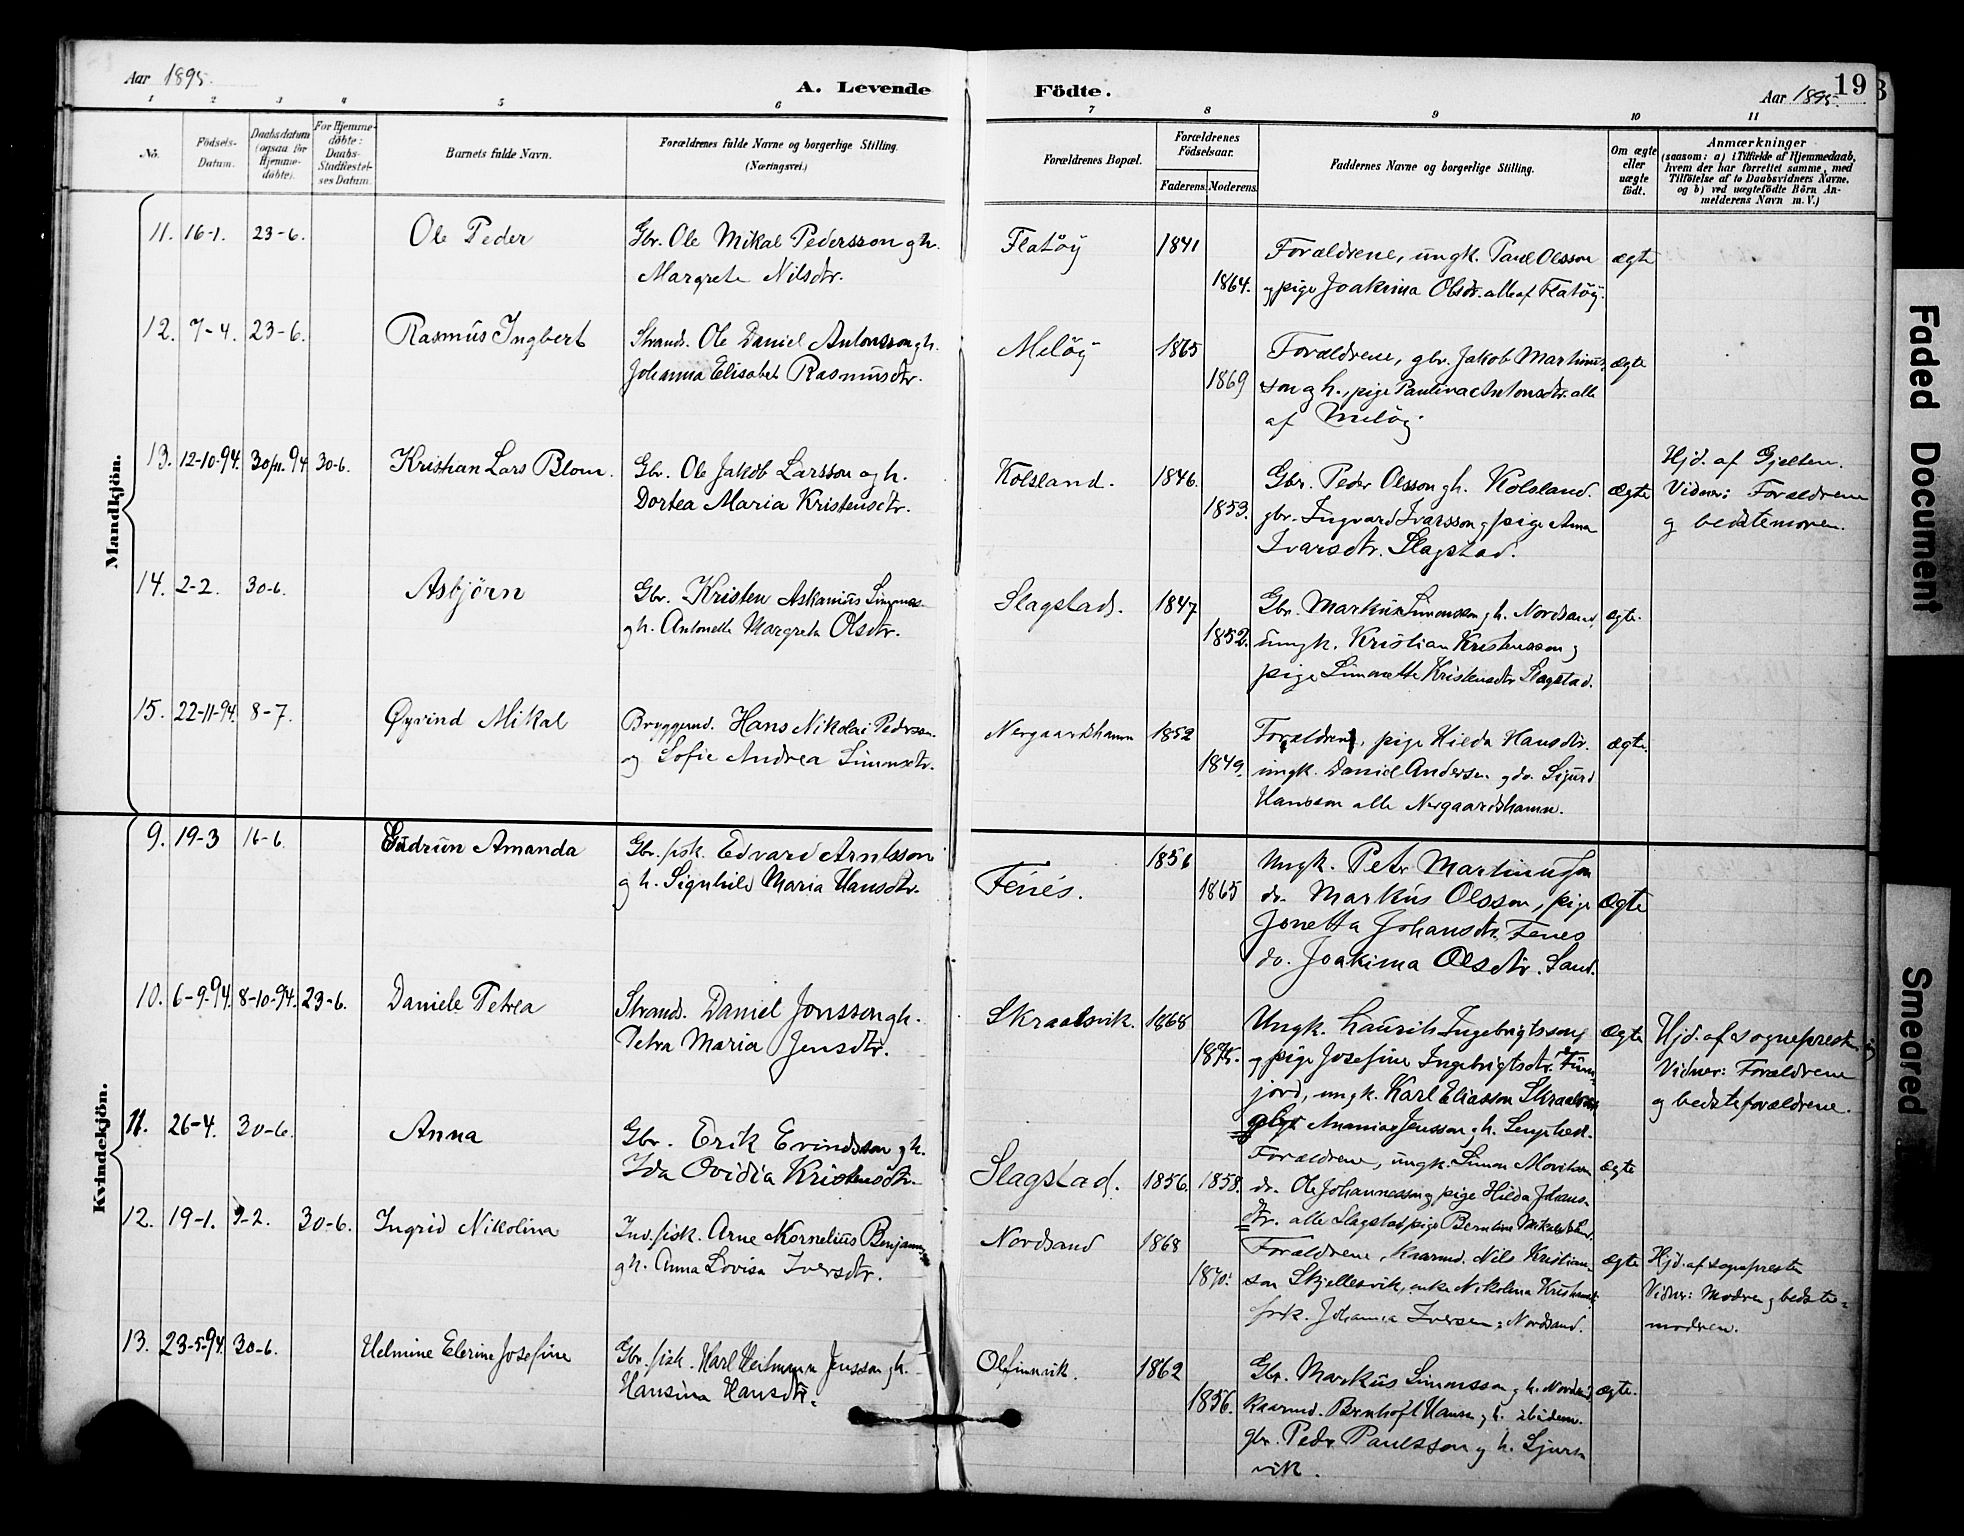 Aar 1895.
A. Levende
Födte.
Aar 1895.
19
1 2 3 4 5 6 7 8 9 10 11
No.
Födsels-
Datum.
Daabsdatum
(ogsaa for
Hjemme-
döbte).
For Hjemme-
döbte:
Daabs-
Stadfæstel-
ses Datum.
Barnets fulde Navn.
Forældrenes fulde Navne og borgerlige Stilling.
(Næringsvei.)
Forældrenes Bopæl.
Forældrenes
Födselsaar.
Faderens. Moderens.
Faddernes Navne og borgerlige Stilling.
Om ægte
eller
uægte
födt.
Anmærkninger
(saasom: a) i Tilfælde af Hjemmedaab,
hvem der har forrettet samme, med
Tilföielse af to Daabsvidners Navne.
og b) ved uægtefödte Börn An-
melderens Navn m.V.)
Mandkjön.
11. 16-1. 23-6. Ole Peder
Gbr. Ole Mikal Pedersson g h.
Margrete Nilsdtr.
Flatøy 1841 1864.
Forældrene, ungk. Paul Olsson
og pige Joakima Olsdtr. alle af Flatøy.
ægte
12. 7-4. 23-6. Rasmus Ingbert
Strands. Ole Daniel Antonsson g h.
Johanna Elisabet Rasmusdtr.
Meløy 1865 1869
Forældrene, gbr. Jakob Martinus-
son g h., pige Paulina Antonsdtr. alle
af Meløy.
ægte
13. 12-10-94. 30/11.94 30-6. Kristian Lars Blom.
Gbr. Ole Jakob Larsson og h.
Dortea Maria Kristensdtr.
Kolsland. 1846. 1853.
Gbr. Peder Olsson g h. Kolsland.
gbr. Ingvard Ivarsson g pige Anna
Ivarsdtr. Slagstad.
ægte
Hjd. af Gjelten.
Vidner: Forældrene
g bedstemoren.
14. 2-2. 30-6. Asbjørn
Gbr. Kristen Askanius
g h. Antonette Margrete Olsdtr.
Slagstad. 1847 1852.
Gbr. Markus Simonsson g h. Nordsand,
ungk. Kristian Kristensson g
pige Simonette Kristensdtr Slagstad.
ægte.
15. 22-11-94. 8-7. Øyvind Mikal
Bryggemd. Hans Nikolai Pedersson
og Sofie Andrea Simonsdtr.
Nergaardshamn 1852 1849.
Forældrene, pige Hilda Hansdtr.
ungk. Daniel Andersen g do. Sigurd
Hansson alle Nergaardshamn.
ægte.
Kvindekjön.
9. 19-3 16-6. Gudrun Amanda
Gbr. fisk. Edvard Arntsson
g h. Signhild Maria Hansdtr.
Fenes. 1856 1865
Ungk. Peter Martinusson
do. Markus Olsson, pige
Jonetta Johansdtr. Fenes
do. Joakima Olsdtr. Sand.
ægte
10. 6-9-94. 8-10-94. 23-6. Daniele Petrea
Strands. Daniel Jonsson g h.
Petra Maria Jensdtr.
Skraalsvik. 1868 1875.
Ungk. Laurits Ingebrigtsson
og pige Josefine Ingebrigtsdtr.
jord, ungk. Karl Eliasson
Ananias Jensson g h.
ægte
Hjd. af sogneprest
Vidner: Forældrene
g bedsteforældrene.
11. 26-4. 30-6. Anna
Gbr. Erik Evindsson g h.
Ida Ovidia Kristensdtr.
Slagstad. 1856. 1858.
Forældrene, ungk. Simon
do. Ole Johannesson g pige Hilda Johans-
dtr. alle Slagstad, pige Berntine
ægte
12. 19-1. 9-2. 30-6. Ingrid Nikolina
Ind. fisk. Arne Kornelius
g h. Anna Lovisa Iversdtr.
Nordsand 1868 1870.
Forældrene, kaarmd. Nils Kristian-
son Skjellesvik, enke Nikolina
frk. Johanna Iversen, Nordsand.
ægte
Hjd. af sognepresten
Vidner: Modren g bedste-
modren.
13. 23-5-94. 30-6. Helmine Elerine Josefine
Gbr. fisk. Karl Jensson g h.
Hansina Hansdtr.
Olfinnvik. 1862 1856.
Gbr. Markus Simonsson g h. Nordsand,
kaarmd. Bernhoft Hansen g h. ibidem.
gbr. Peder Paulsson g h.
vik.
ægte.
Faded Document
Smeared